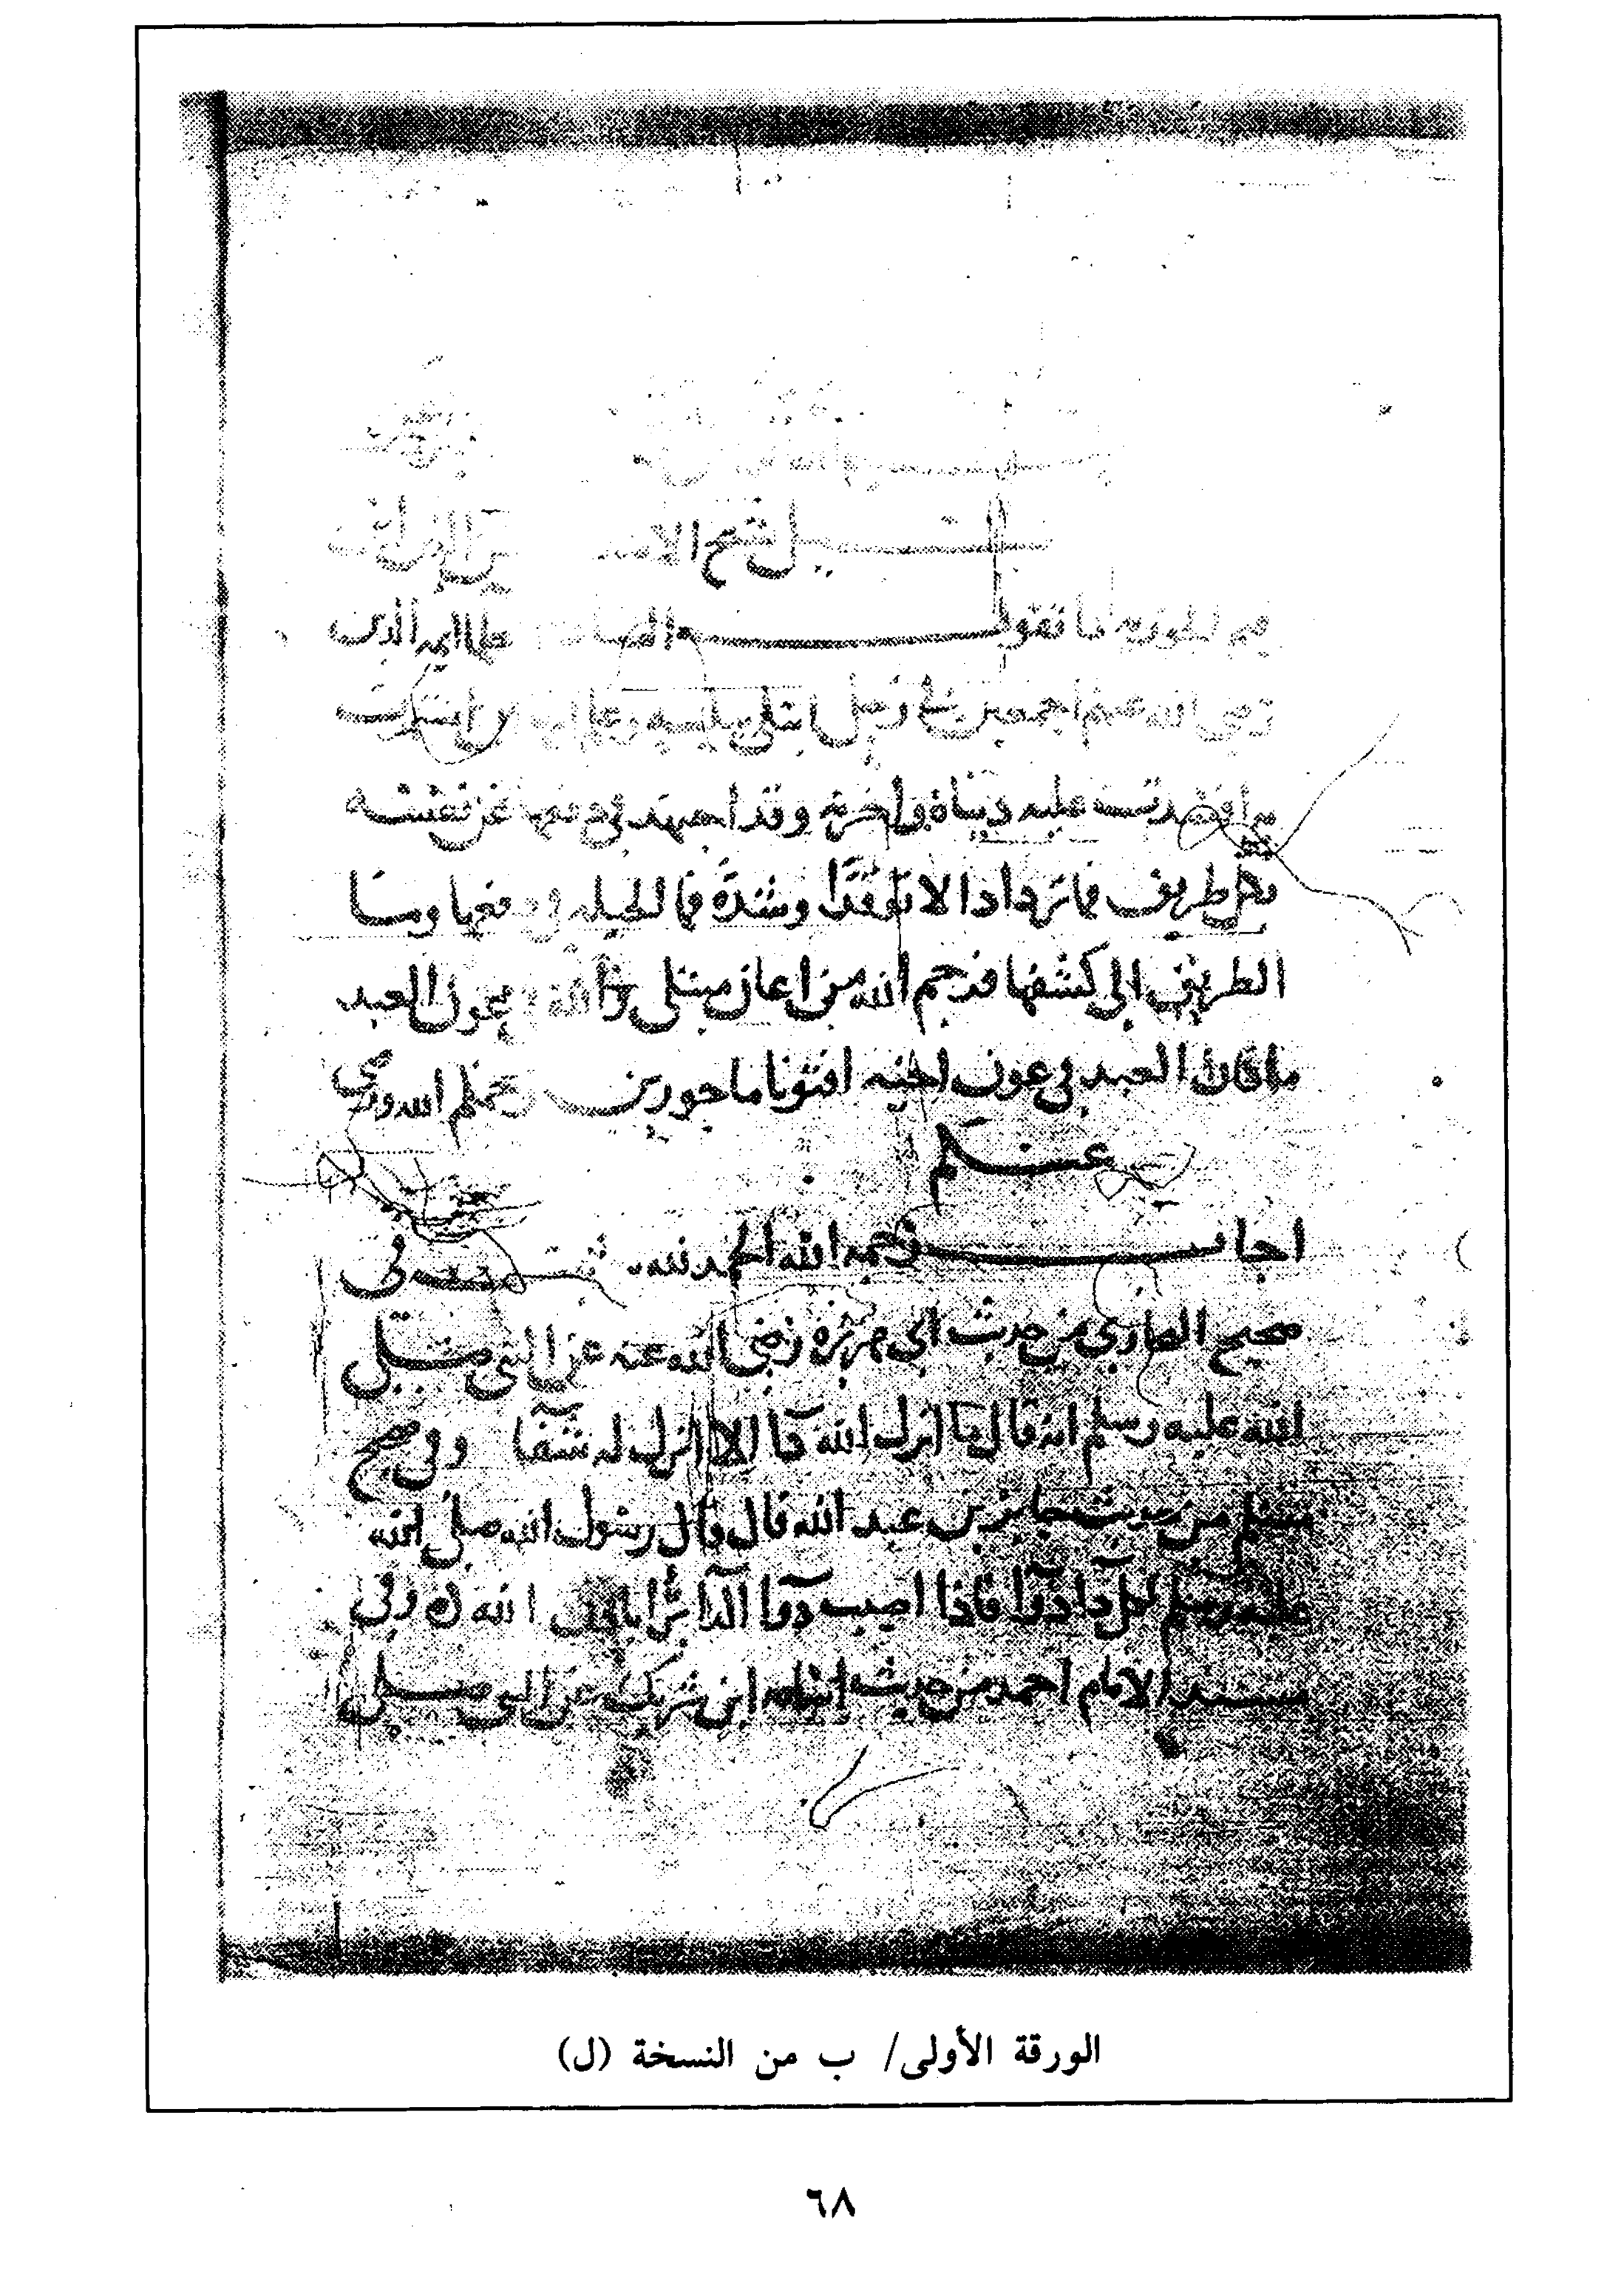 شيخ الا
ما تقول
رضي الله عنهم اجمعين في رجل ابتلي ببليه وعلم ان استمرت
به افسدت عليه دنياه واخرته وقد اجتهد في دفعها عن نفسه
بكل طريق فما تزداد الا توقدا وشدة فما الحيله في دفعها وما
الطريق الى كشفها فرحم الله من اعان مبتلى والله في عون العبد
ما كان العبد في عون اخيه افتونا ماجورين رحمكم الله ورضي
عنكم
اجاب رحمه الله الحمد لله ثبت في
صحيح البخاري من حديث ابي هريرة رضي الله عنه عن النبي صلى
الله عليه وسلم انه قال ما انزل الله دآ الا انزل له شفآ وفي صحيح
مسلم من حديث جابر بن عبد الله قال قال رسول الله صلى الله
عليه وسلم لكل دآ دوآ فاذا اصيب دوآ الدآ برا باذن الله وفي
مسند الامام احمد من حديث اسامه ابن شريك عن النبي صلى
الورقة الأولى/ ب من النسخة (ل)
٦٨